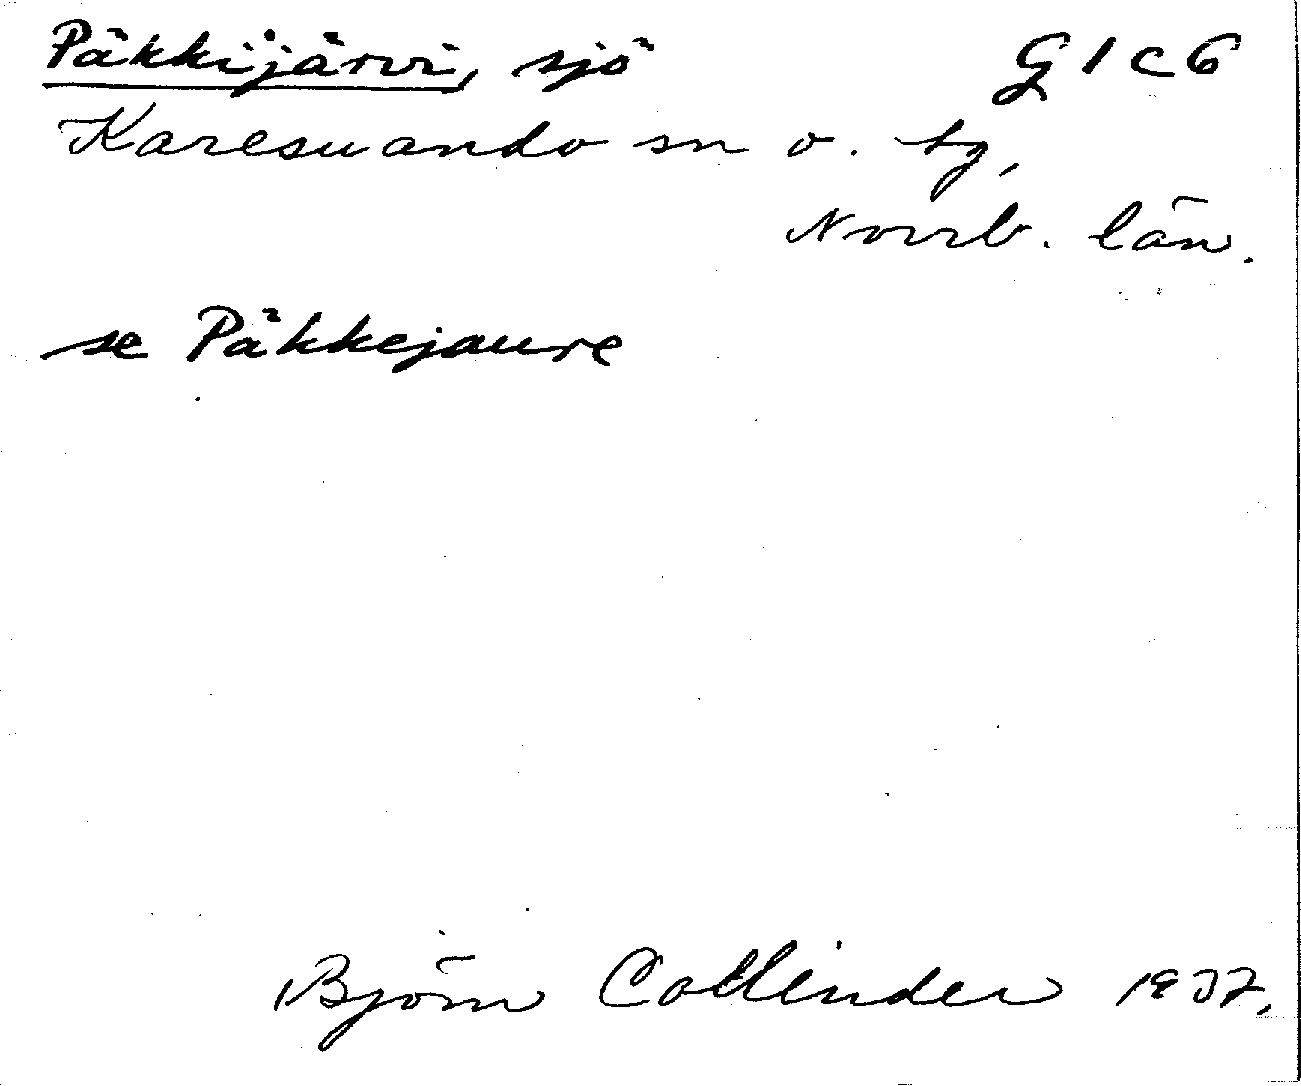 Päkkijärvi, sjö G 1 c 6
Karesuando sn o. tg,
Norrb. län.
se Päkkejaure
Björn Collinder 1937.